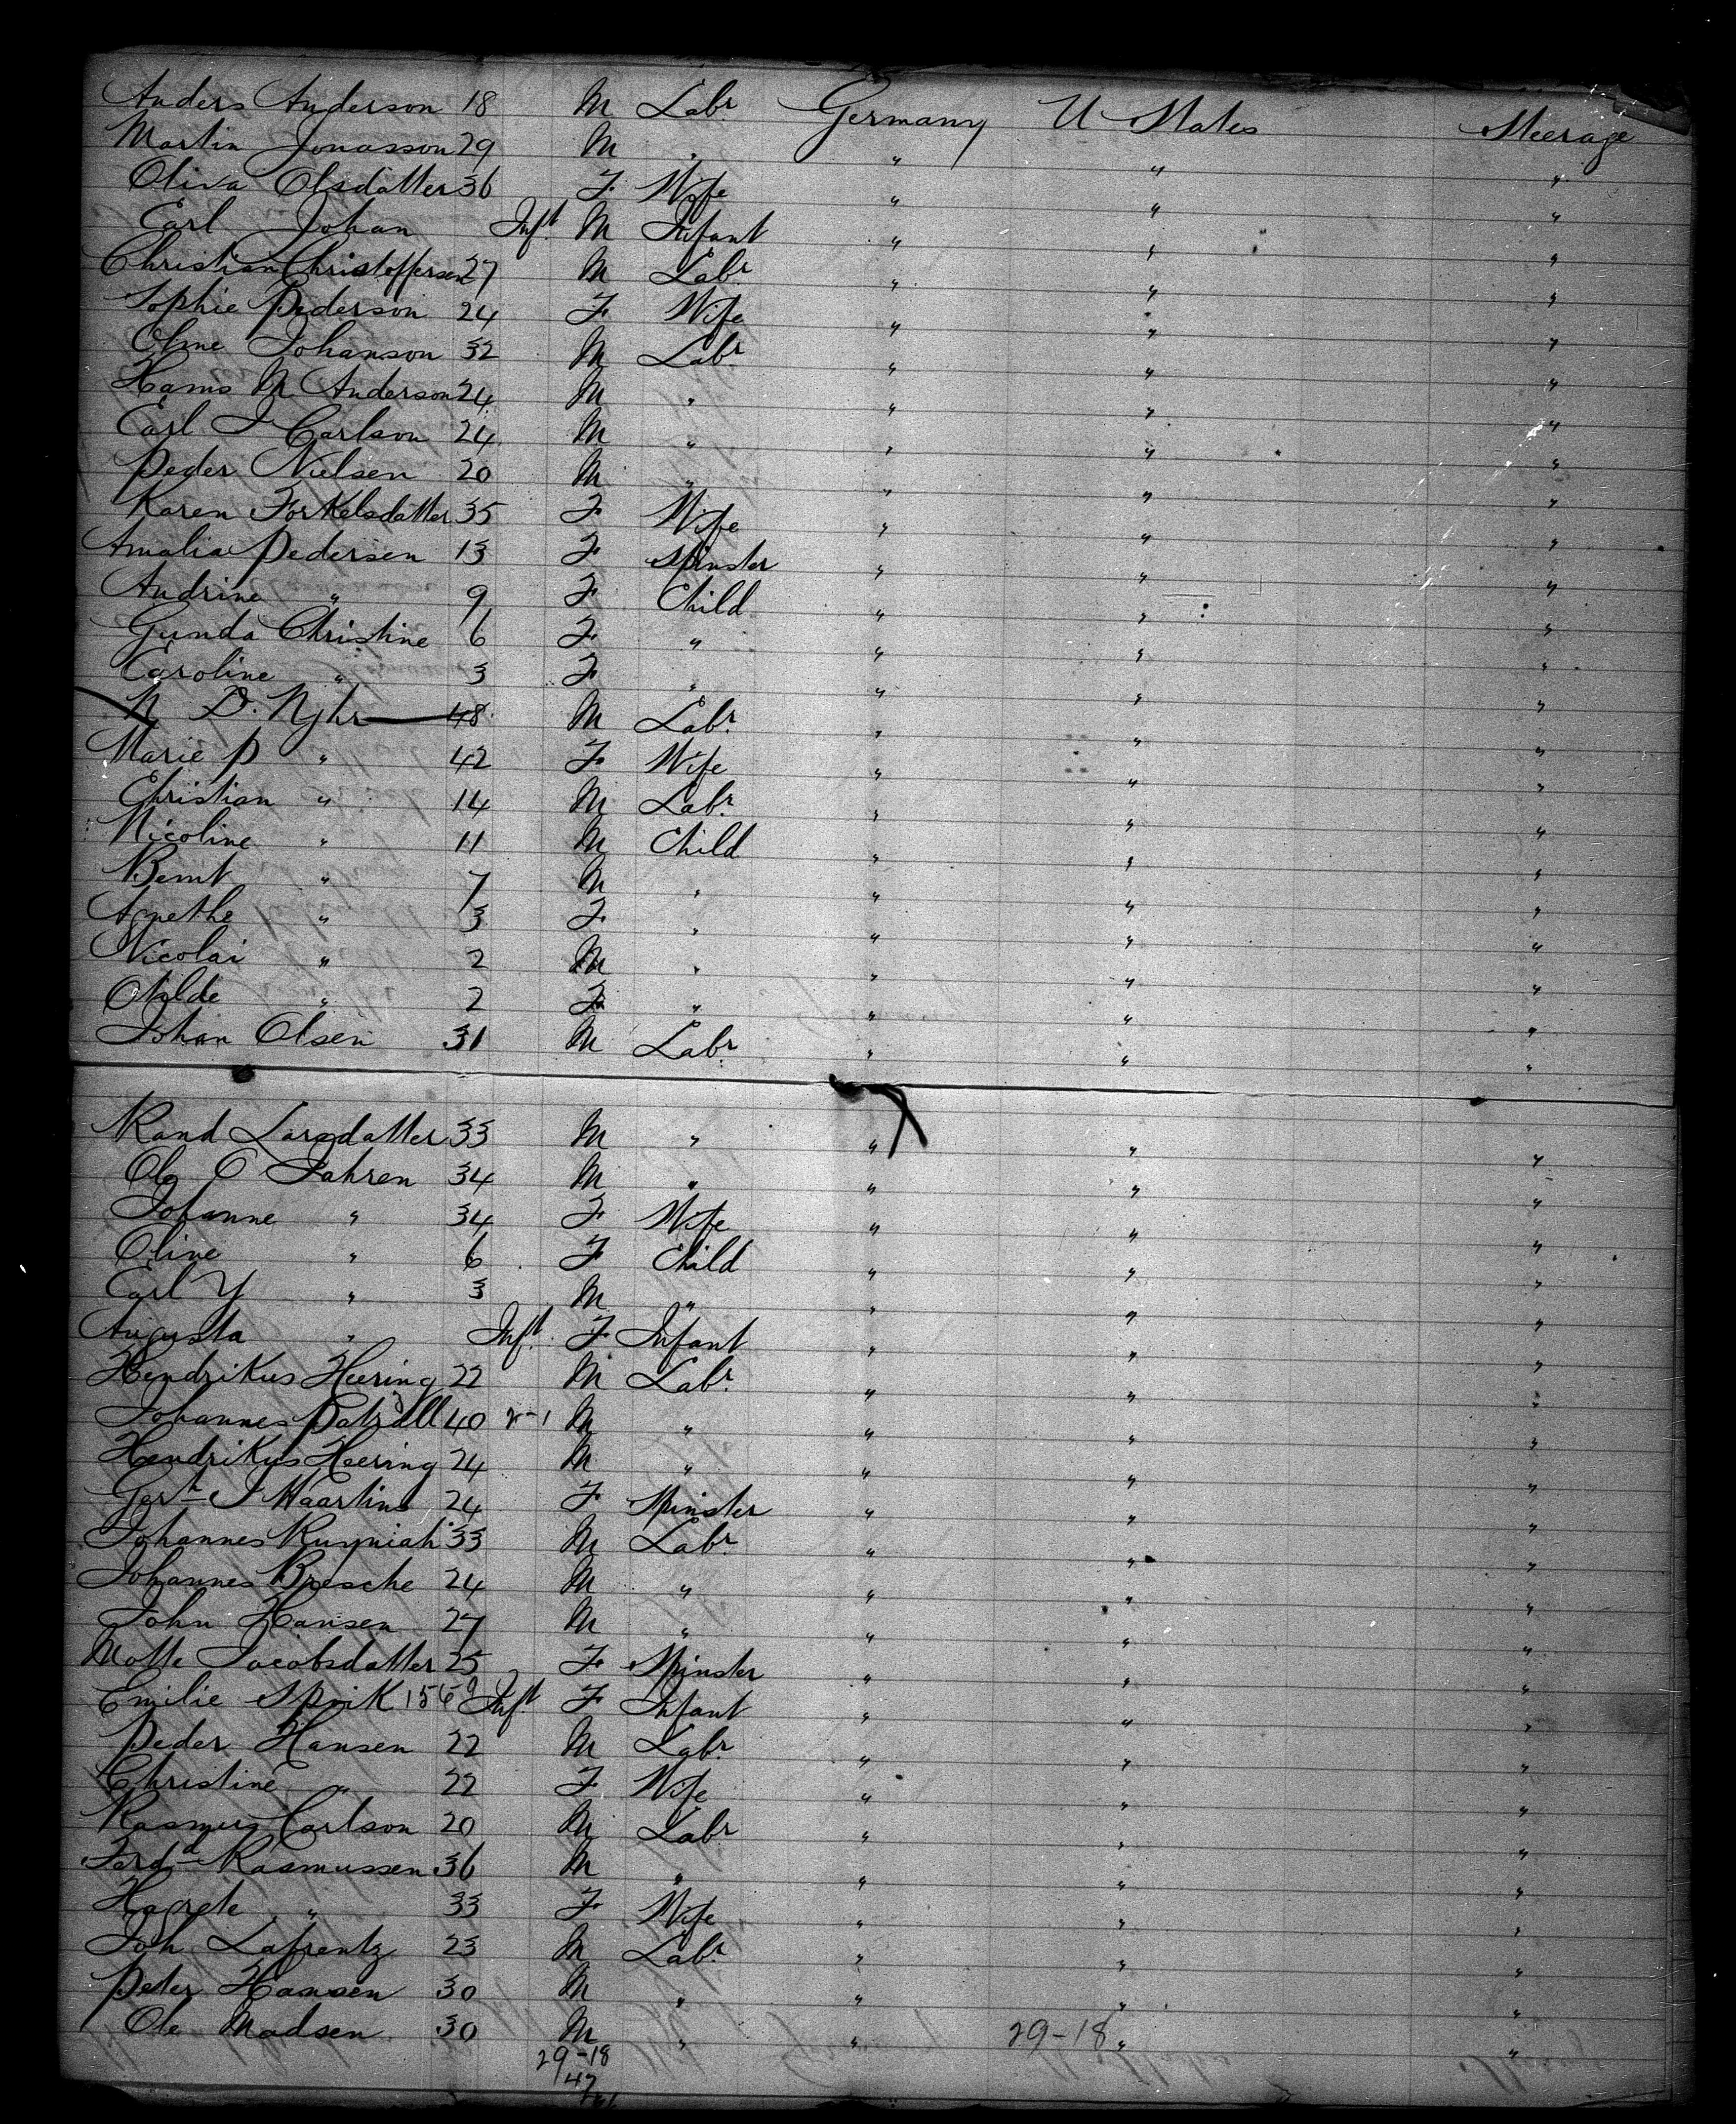 Anders Anderson 18 M Labr Germany U States Steerage
Martin Jonasson 29 M " " " "
Oliva Olsdatter 36 F Wife " " "
Carl Johan Inft M Infant " " "
Christian Christoffersen 27 M Labr " " "
Sophie Pederson 24 F Wife " " "
Oline Johanson 32 M Labr " " "
Hams M Anderson 24 M " " " "
Carl J Carlson 24 M " " " "
Peder Nielsen 20 M " " " "
Karen Torkelsdatter 35 F Wife " " "
Amalia Pedersen 13 F Spinster " " "
Andrine " 9 F Child " " "
Gunda Christine 6 F " " " "
Caroline " 3 F " " " "
N D. Njhr 48 M Labr " " "
Marie P " 42 F Wife " " "
Christian " 14 M Labr " " "
Nicoline " 11 M Child " " "
Bernt " 7 M " " " "
Agnethe " 3 F " " " "
Nicolai " 2 M " " " "
Otilde " 2 F " " " "
Johan Olsen 31 M Labr " " "
Rand Larsdatter 33 M " " " "
Ole O Fahren 34 M " " " "
Johanne " 34 F Wife " " "
Oline " 6 F Child " " "
Carl Y " 3 M " " " "
Augusta " Inft F Infant " " "
Hendrikus Heering 22 M Labr " " "
Johannes 40 M " " " "
Hendrikus Heering 24 M " " " "
Gert J Maartins 24 F Spinster " " "
Johannes 33 M Labr " " "
Johannes Bresche 24 M " " " "
John Hansen 27 M " " " "
Motte Jacobsdatter 25 F Spinster " " "
Emilie Spoik Inft F Infant " " "
Peder Hansen 22 M Labr " " "
Christine " 22 F Wife " " "
Rasmus Carlson 20 M Labr " " "
Ferdd Rasmussen 36 M " " " "
Hagrete " 33 F Wife " " "
Joh Lafrentz 23 M Labr " " "
Peter Hansen 30 M " " " "
Ole Madsen 30 M " " 29-18 " "
29-18
47